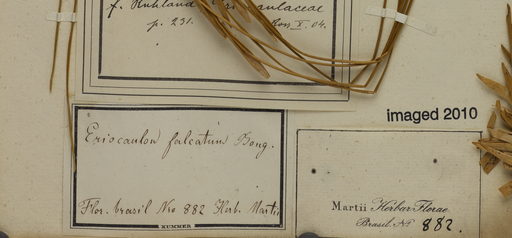 f. Ruhland, Eriocaulaceae
p. 231.
X. 04.
imaged 2010
Eriocaulon falcatum Bong.
Flor. brasil Nro 882 Herb. Martii
KUMMER
Martii Herbar. Florae
Brasil. Nº 882.